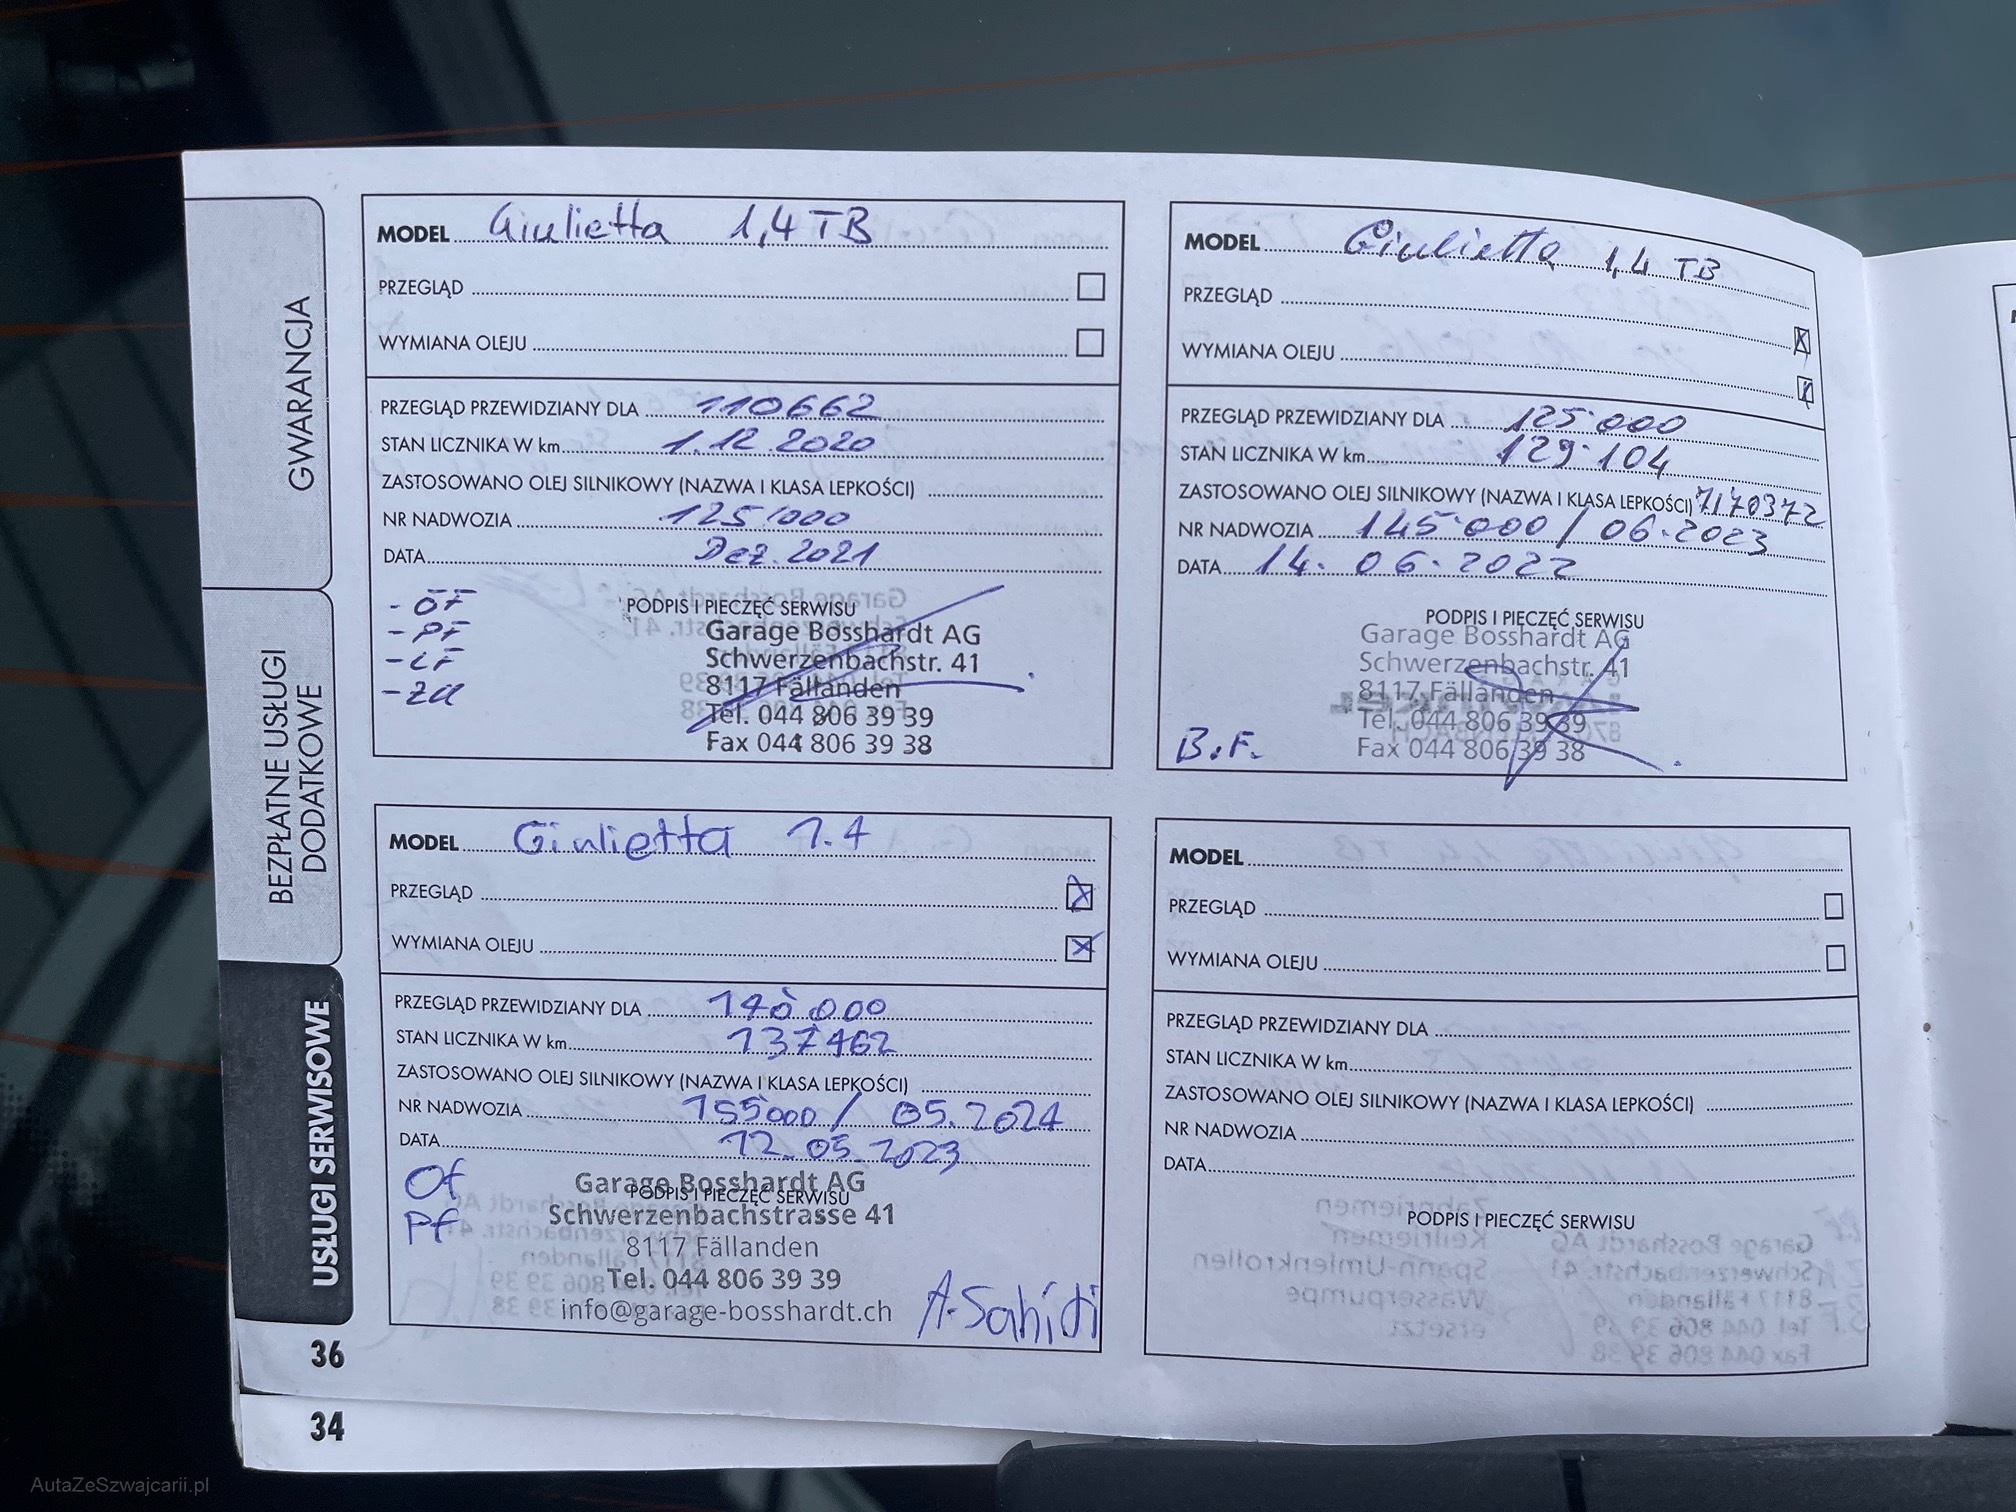 GWARANCJA
BEZPŁATNE USŁUGI
DODATKOWE
USŁUGI SERWISOWE
MODEL Giulietta 1,4 TB
PRZEGLĄD
WYMIANA OLEJU
PRZEGLĄD PRZEWIDZIANY DLA 110662
STAN LICZNIKA W km 1.12.2020
ZASTOSOWANO OLEJ SILNIKOWY (NAZWA I KLASA LEPKOŚCI)
NR NADWOZIA 125'000
DATA Dez. 2021
- ÖF
- PF
- LF
- ZÜ
PODPIS I PIECZĘĆ SERWISU
Garage Bosshardt AG
Schwerzenbachstr. 41
8117 Fällanden
Tel. 044 806 39 39
Fax 044 806 39 38
MODEL Giulietta 1,4 TB
PRZEGLĄD
WYMIANA OLEJU
PRZEGLĄD PRZEWIDZIANY DLA 125'000
STAN LICZNIKA W km 129'104
ZASTOSOWANO OLEJ SILNIKOWY (NAZWA I KLASA LEPKOŚCI) 7170372
NR NADWOZIA 145'000 / 06.2023
DATA 14. 06. 2022
PODPIS I PIECZĘĆ SERWISU
Garage Bosshardt AG
Schwerzenbachstr. 41
8117 Fällanden
Tel. 044 806 39 39
Fax 044 806 39 38
B.F.
MODEL Giulietta 1.4
PRZEGLĄD
WYMIANA OLEJU
PRZEGLĄD PRZEWIDZIANY DLA 140'000
STAN LICZNIKA W km 137462
ZASTOSOWANO OLEJ SILNIKOWY (NAZWA I KLASA LEPKOŚCI)
NR NADWOZIA 155000 / 05.2024
DATA 12.05.2023
Of
Pf
PODPIS I PIECZĘĆ SERWISU
Garage Bosshardt AG
Schwerzenbachstrasse 41
8117 Fällanden
Tel. 044 806 39 39
info@garage-bosshardt.ch
A. Sahiti
MODEL
PRZEGLĄD
WYMIANA OLEJU
PRZEGLĄD PRZEWIDZIANY DLA
STAN LICZNIKA W km
ZASTOSOWANO OLEJ SILNIKOWY (NAZWA I KLASA LEPKOŚCI)
NR NADWOZIA
DATA
PODPIS I PIECZĘĆ SERWISU
36
34
AutaZeSzwajcarii.pl